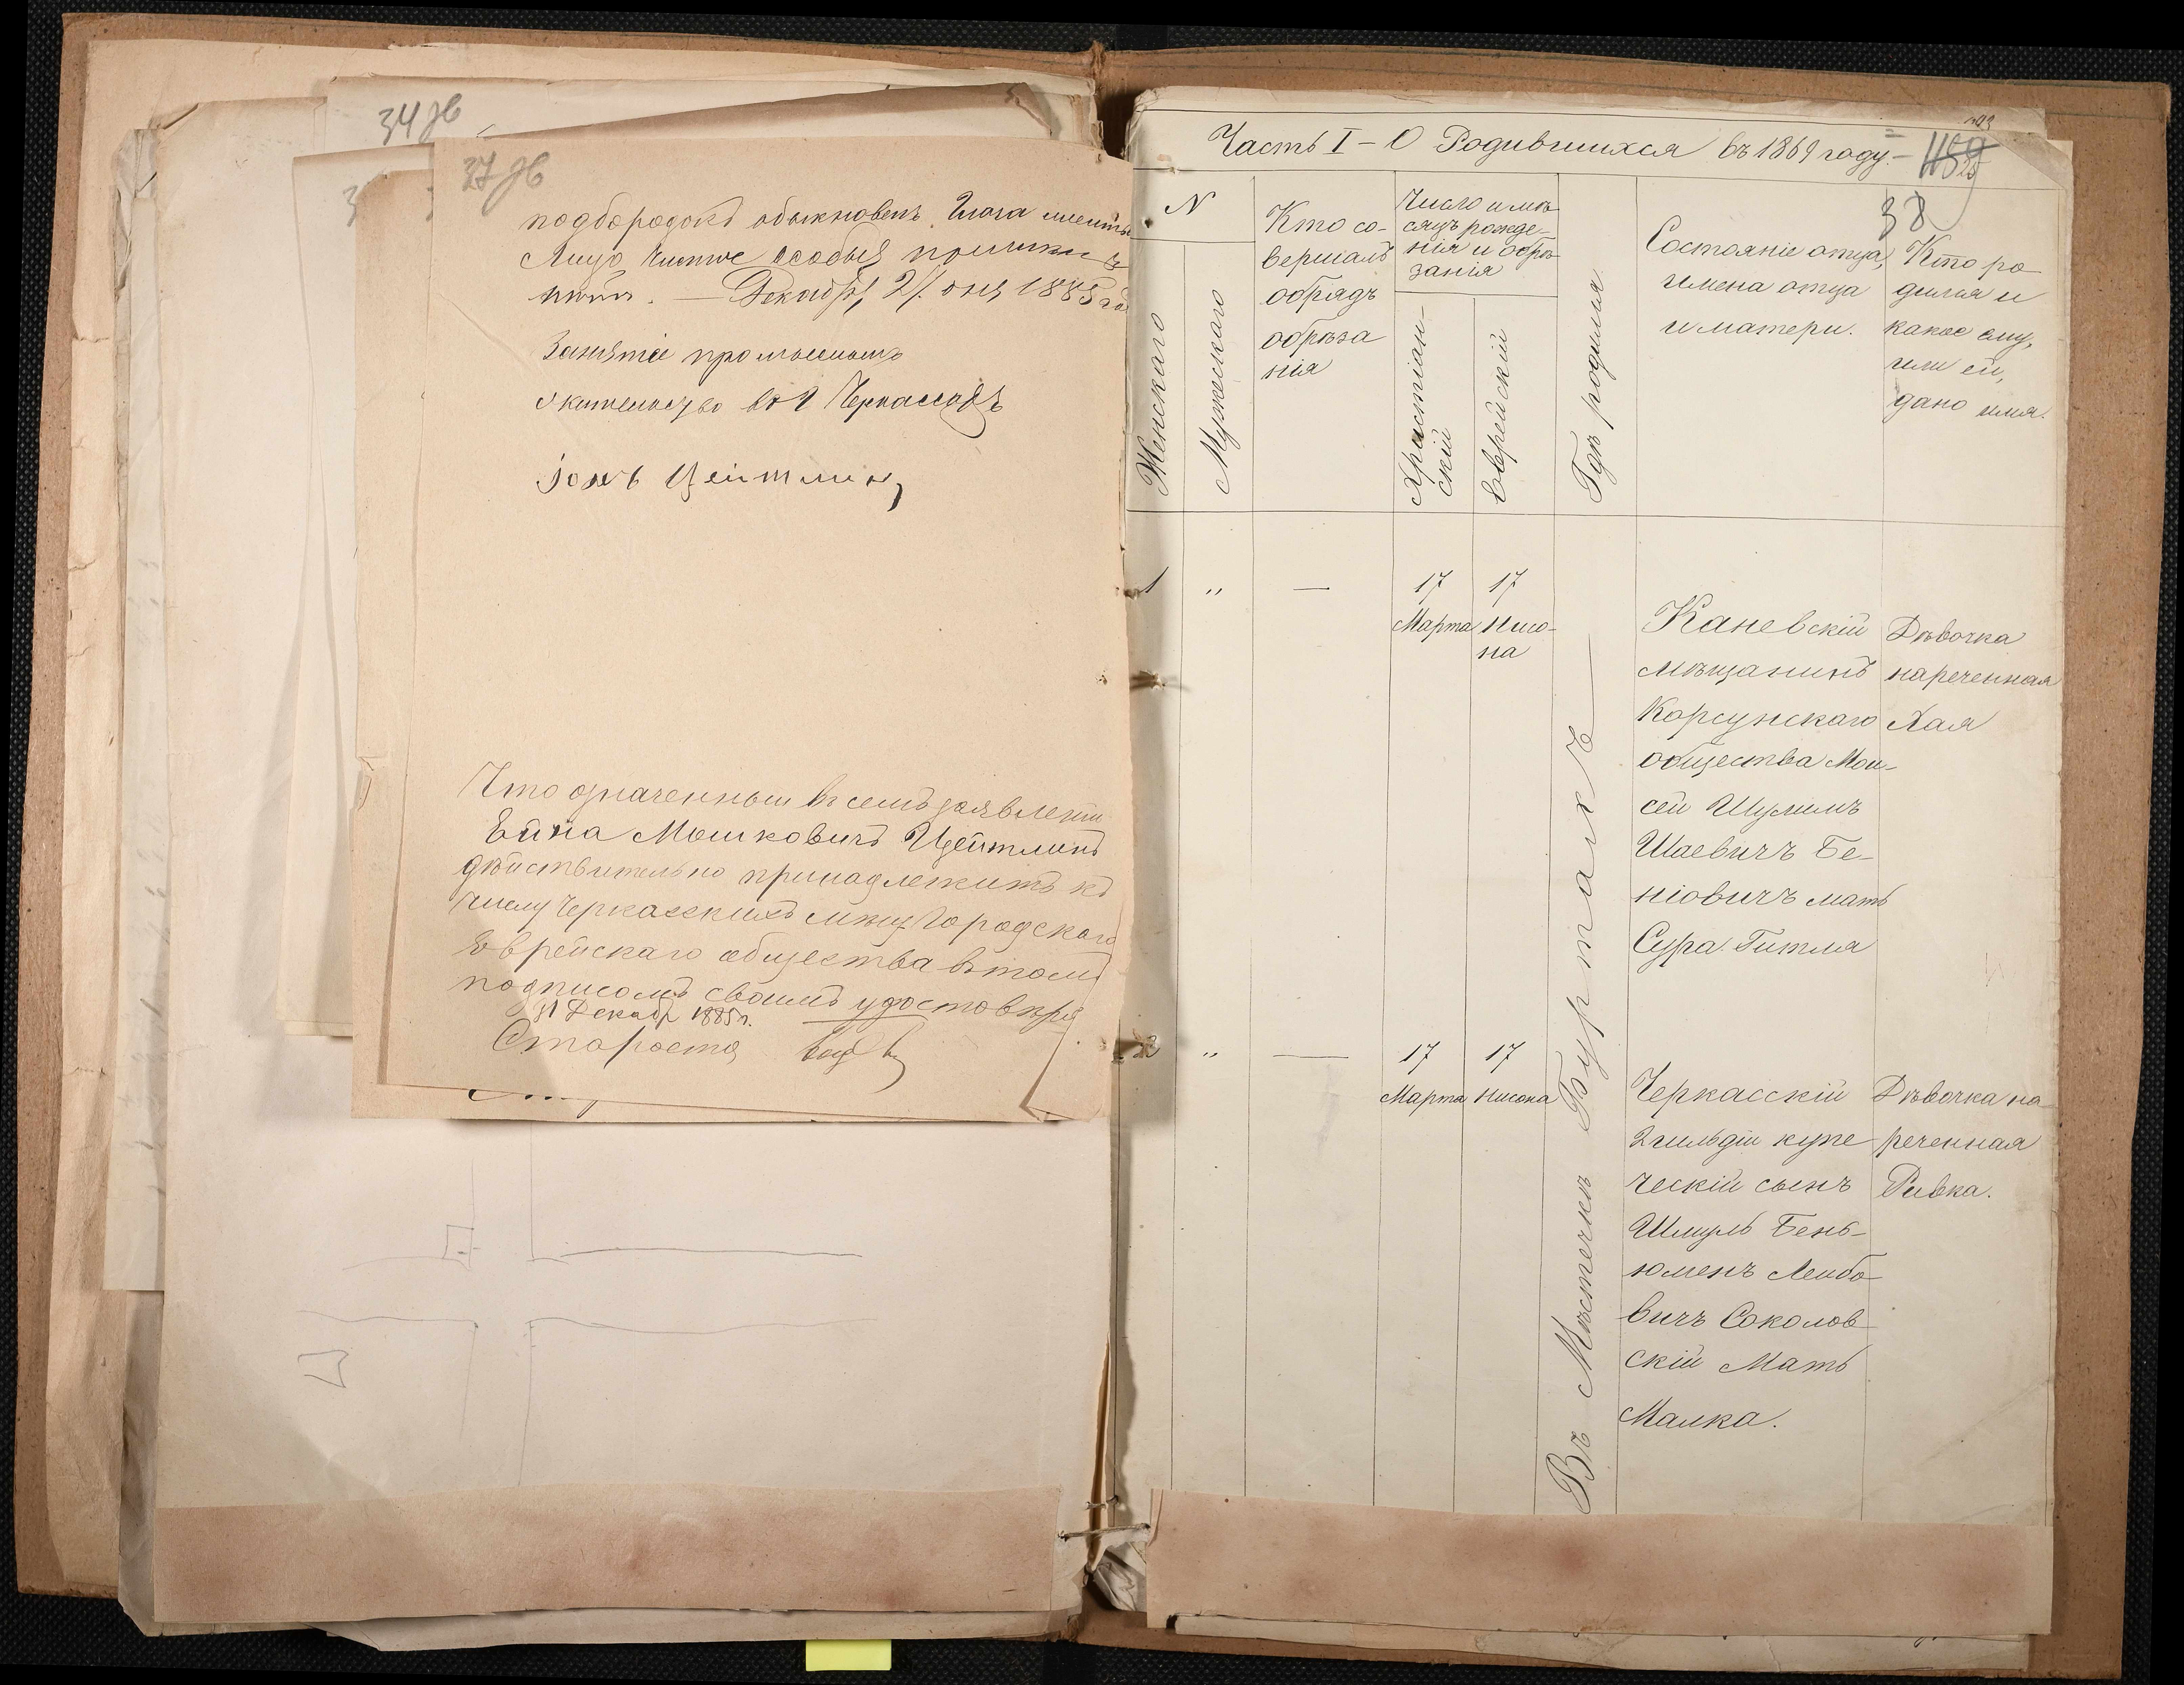 34 об
37 об
подбородокъ обыкновенъ
Лицо чистое особыя примѣты
Декабря 21 дня 1885
Занятіе
жительство въ г Черкассахъ
Цейтлинъ
Что означенный въ семъ заявленіи
Ейна Мошковичъ Цейтлинъ
дѣйствительно принадлежитъ къ
числу Черкасскихъ мѣщ Городского
Еврейскаго общества въ томъ
подписомъ своимъ удостовѣряю
31 Декабр 1885 г.
Староста
Часть I – О Родившихся въ 1869 году. –
38
N
Женскаго
Мужескаго
Кто со-
вершалъ
обрядъ
обрѣза
нія
Число и мѣ-
сяцъ рожде-
нія и обрѣ-
занія
Христіан-
скій
Еврейскій
Гдѣ родился
Состояніе отца,
имена отца
и матери.
Кто ро
дился и
какое ему,
или ей,
дано имя.
1 " — 17 17
Марта Нисо-
на
Каневскій
мѣщанинъ
Корсунскаго
общества Мои-
сей Шулимъ
Шаевичъ Бе-
ніовичъ мать
Сура Гитля
Дѣвочка
нареченная
Хая
Въ Мѣстечкѣ Буртахъ
2 " — 17 17
Марта Нисона
Черкасскій
2 гильдіи купе
ческій сынъ
Шмуль Бень-
юменъ Лейбо-
вичъ Соколов-
скій Мать
Малка.
Дѣвочка на
реченная
Ривка.